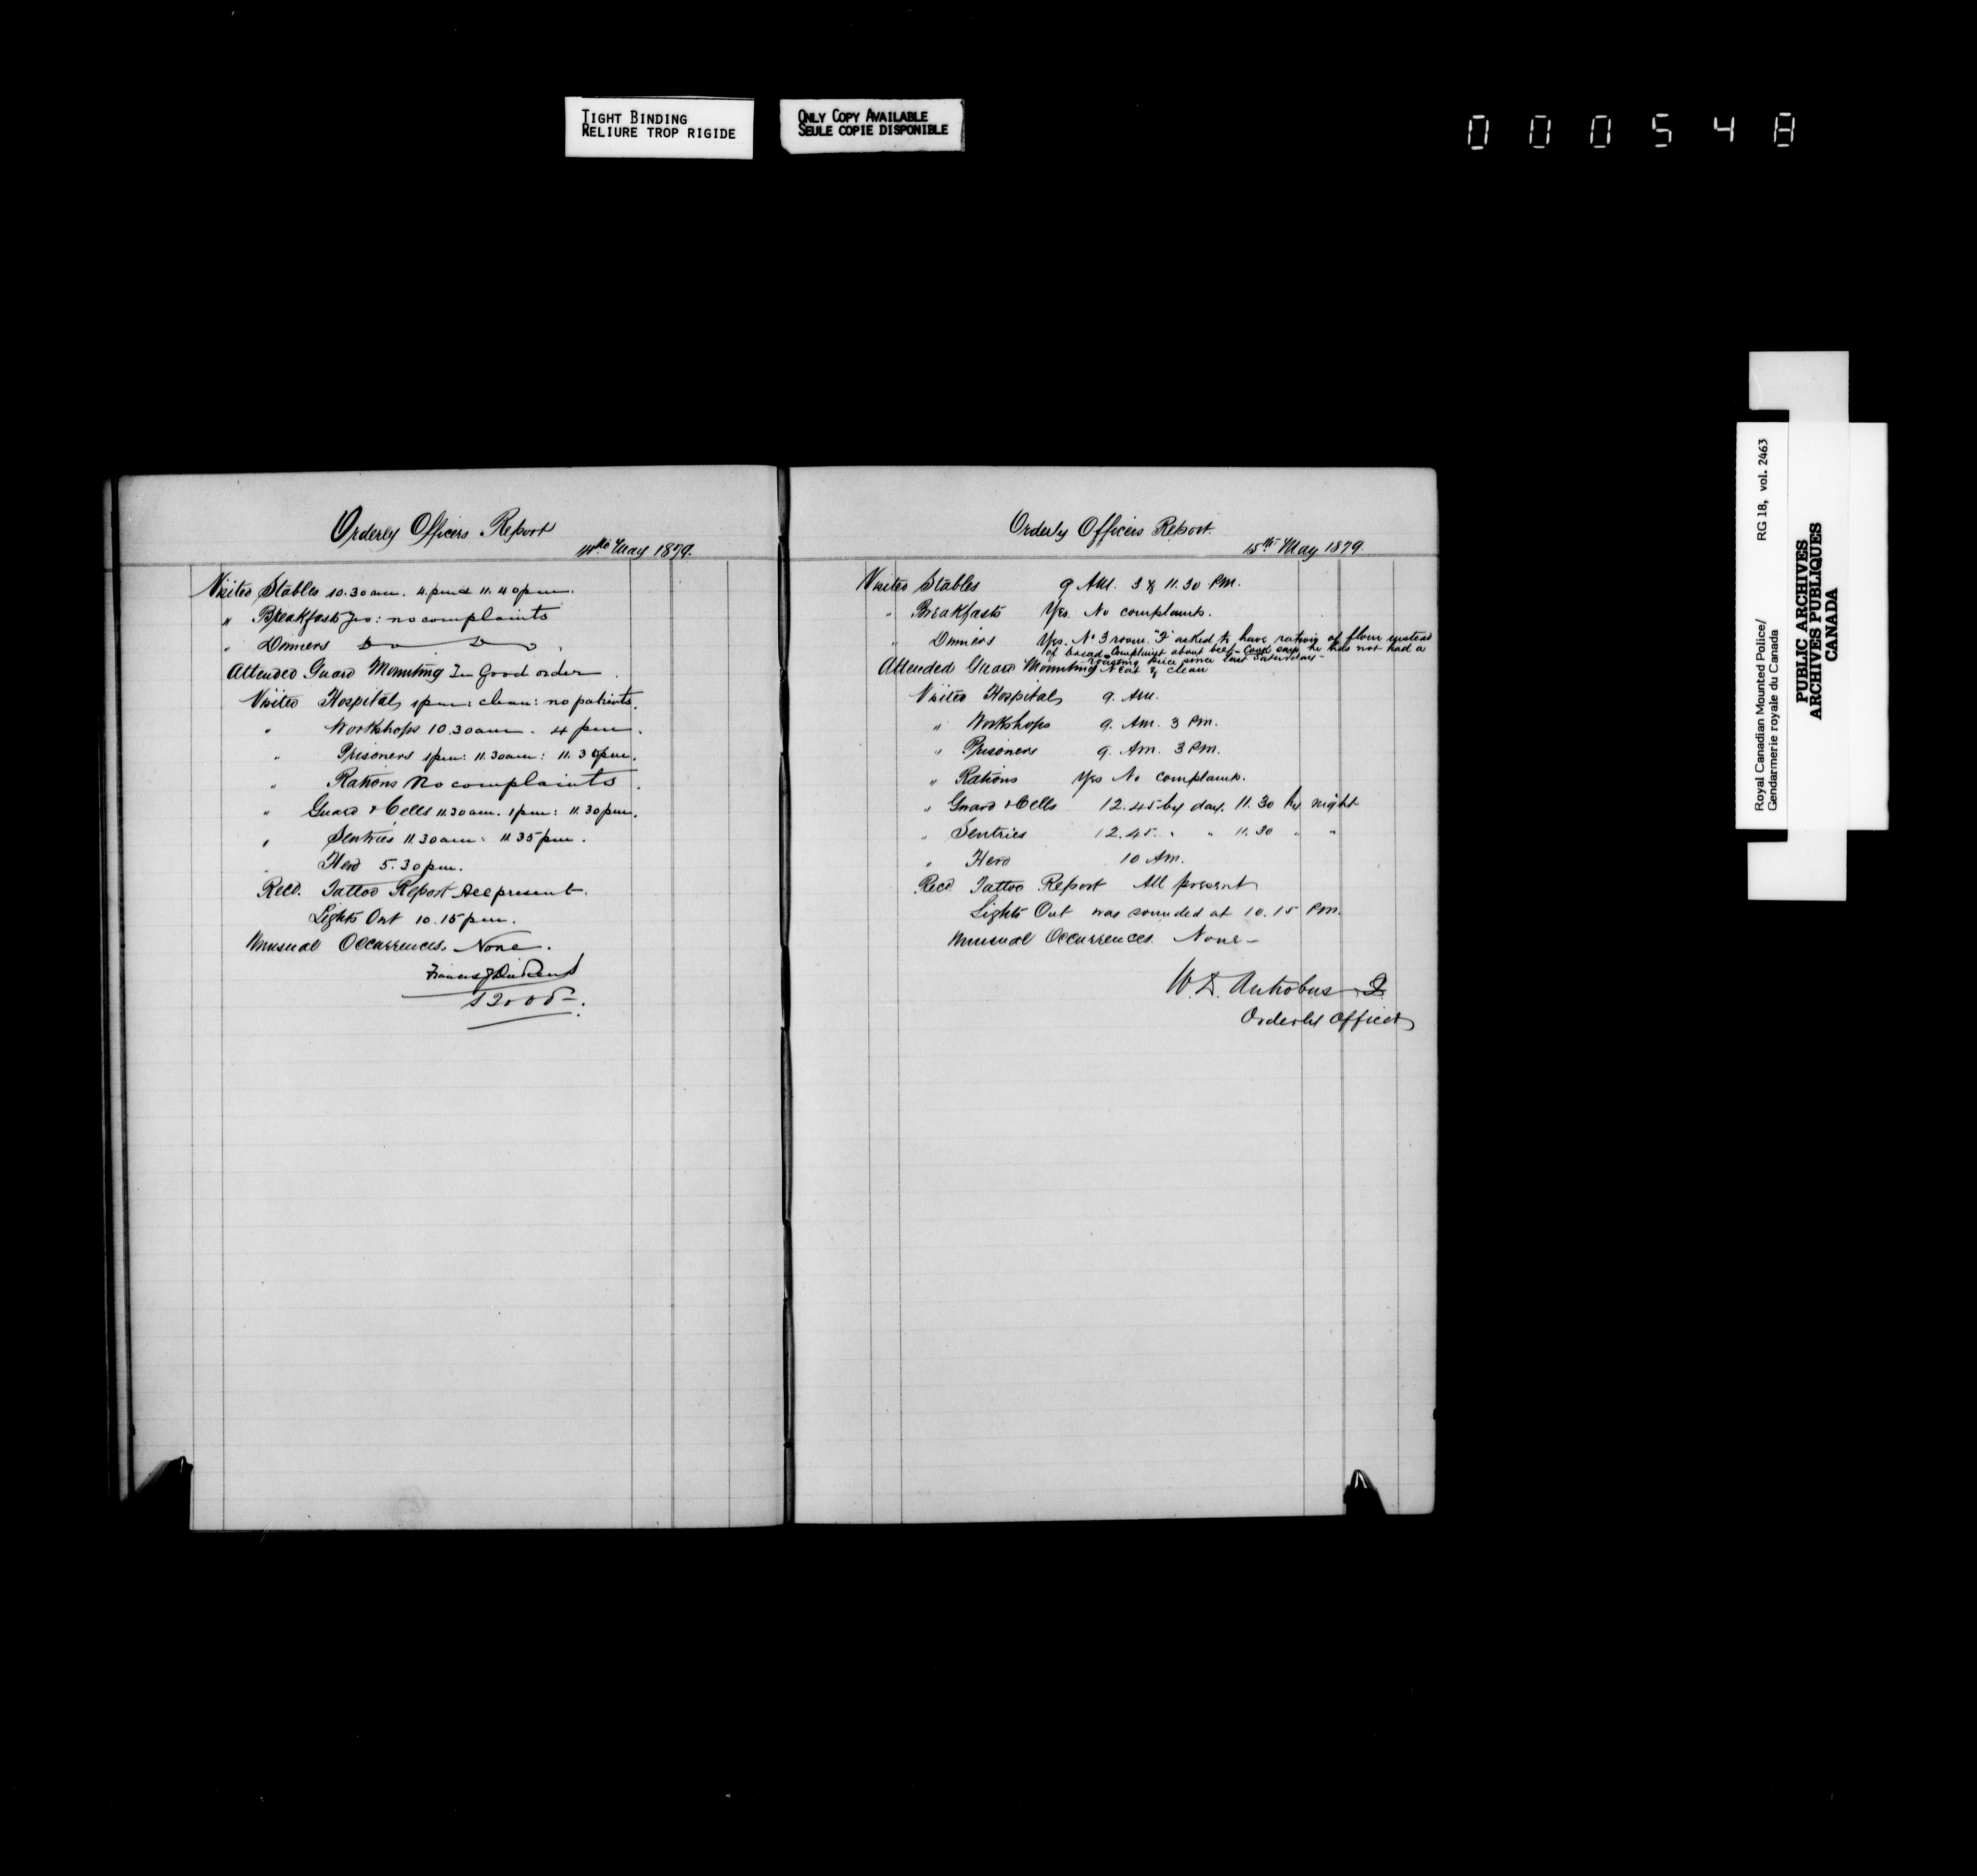 TIGHT BINDING
RELIURE TROP RIGIDE
ONLY COPY AVAILABLE
SEULE COPIE DISPONIBLE
000548
Orderly Officers Report
14th May 1879.
Visited Stables 10.30 am. 4. pm & 11.40 pm.
" Breakfasts Yes: no complaints
" Dinners Do Do
Attended Guard Mounting In Good order.
Visited Hospital, 1 pm: clean: no patients.
" Workshops 10.30 am. 4 pm.
" Prisoners 1 pm: 11.30 am: 11.30 pm.
" Rations No complaints.
" Guard & Cells 11.30 am. 1 pm: 11.30 pm.
" Sentries 11.30 am: 11.35 pm.
" Herd 5.30 pm.
Recd. Tattoo Report All present.
Lights Out 10.15 pm.
Unusual Occurrences. None.
Francis J Dickens
Orderly Officers Report.
15th May 1879.
Visited Stables 9 AM. 3 & 11.30 PM.
" Breakfasts Yes. No complaints.
" Dinners Yes. No 3 room. "F" asked to have rations of flour instead
of bread. Complaint about beef - says he has not had a
piece since last Saturday -
Attended Guard Mounting Neat & clean
Visited Hospital, 9. AM.
" Workshops 9. AM. 3 PM.
" Prisoners 9. AM. 3 PM.
" Rations Yes No complaints.
" Guard & Cells 12.45 by day. 11.30 by night
" Sentries 12.45. " " 11.30 " "
" Herd 10 AM.
Recd Tattoo Report All present
Lights Out was sounded at 10.15 PM.
Unusual Occurrences. None -
W. D. Antrobus
Orderly Officer
Royal Canadian Mounted Police/
Gendarmerie royale du Canada
RG 18, vol. 2463
PUBLIC ARCHIVES
ARCHIVES PUBLIQUES
CANADA